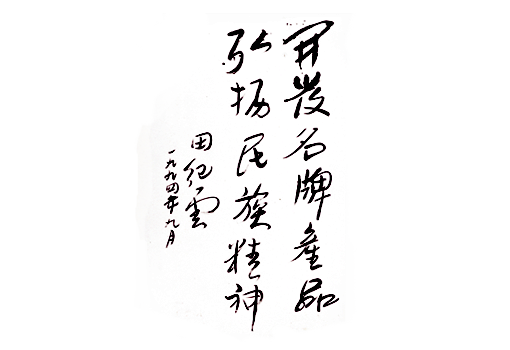 開發名牌產品
弘揚民族精神
田纪雲
一九九四年九月